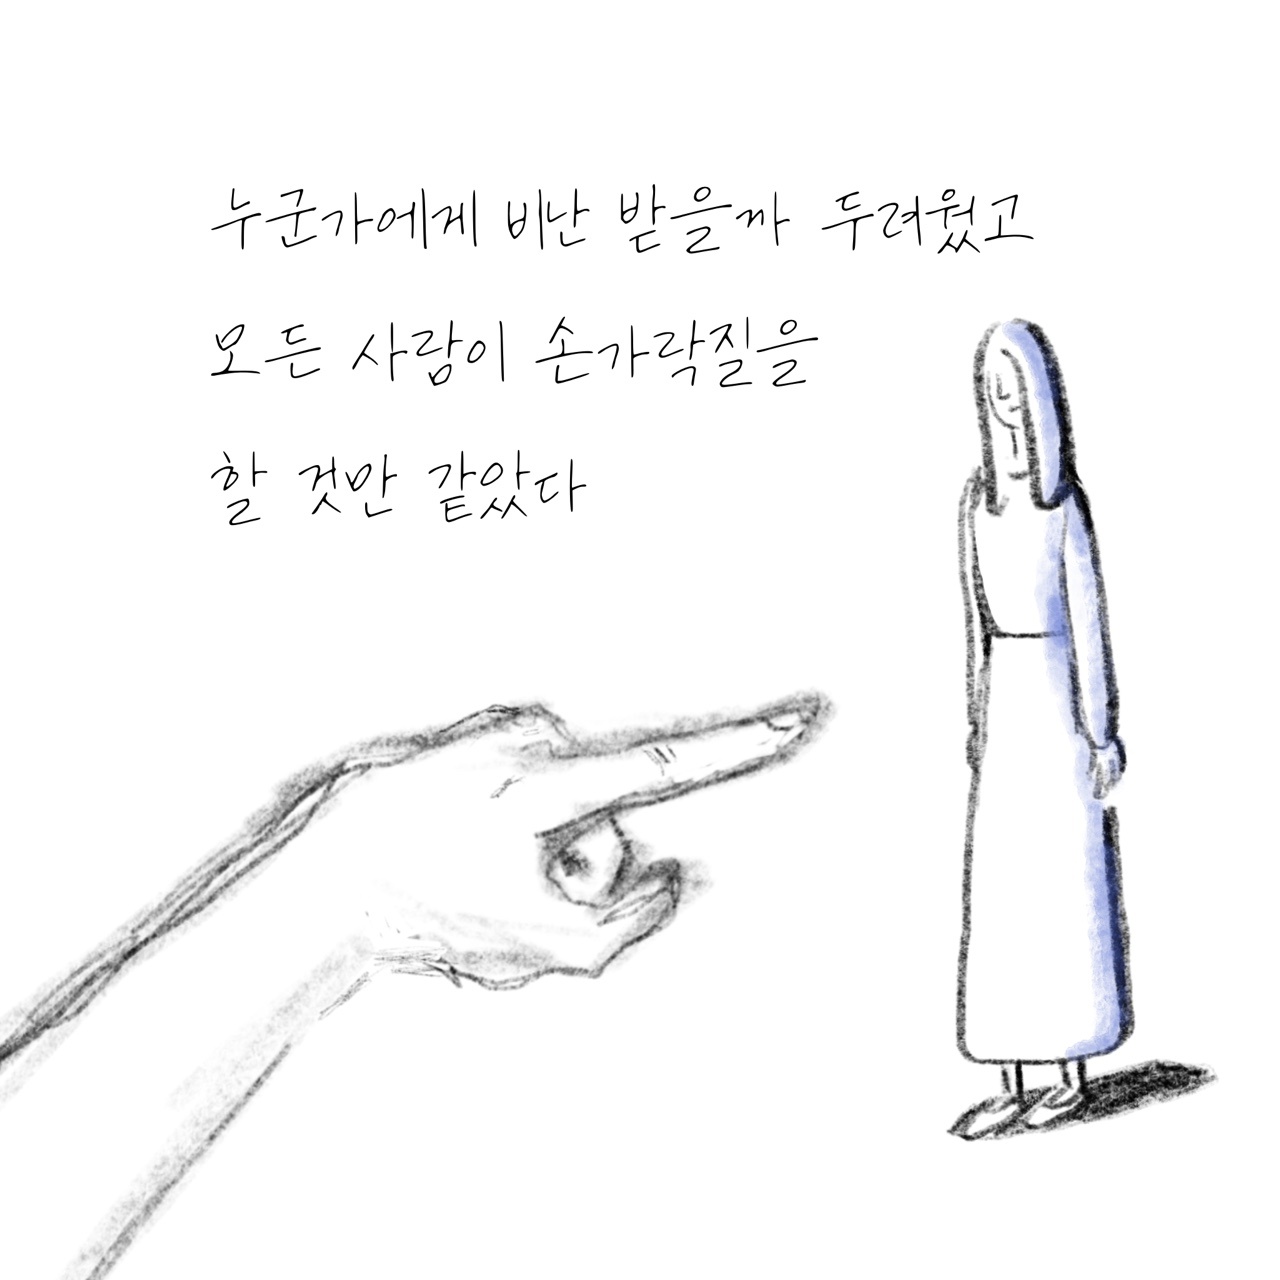 누군가에게 비난 받을까 두려웠고
모든 사람이 손가락질을
할 것만 같았다